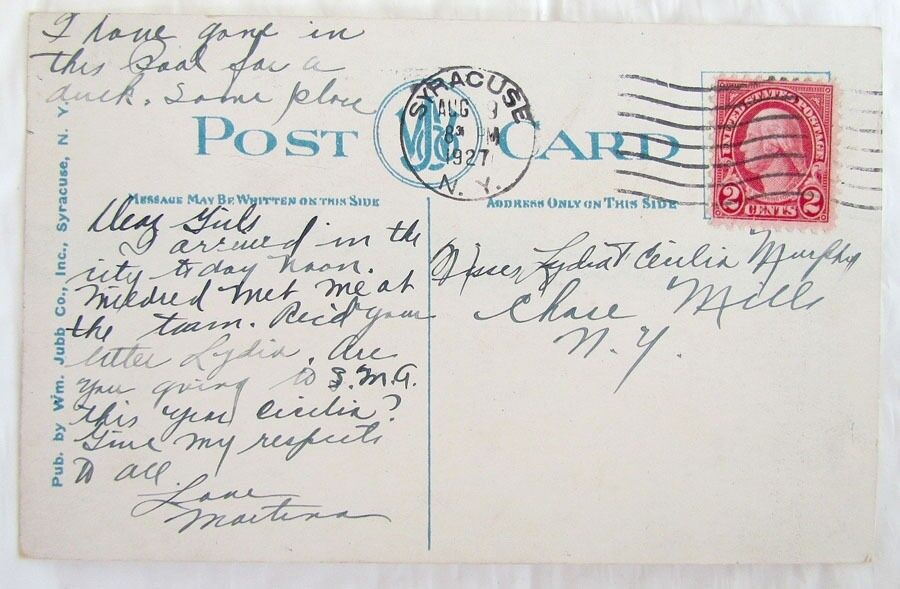 I have gone in
this Pool for a
duck. Some place
POST CARD
MJC
SYRACUSE
AUG
8 M
1927
N. Y.
UNITED STATES POSTAGE
2 CENTS 2
MESSAGE MAY BE WRITTEN ON THIS SIDE
ADDRESS ONLY ON THIS SIDE
Pub. by Wm. Jubb Co., Inc., Syracuse, N. Y.
Dear Girls
I arrived in the
city today noon.
Mildred met me at
the train. Rec'd your
letter Lydia. Are
you going to S.M.A.
this year Cecilia?
Give my respects
to all.
Love
Martina
Misses Lydia & Cecilia Murphy
Chase Mills
N. Y.